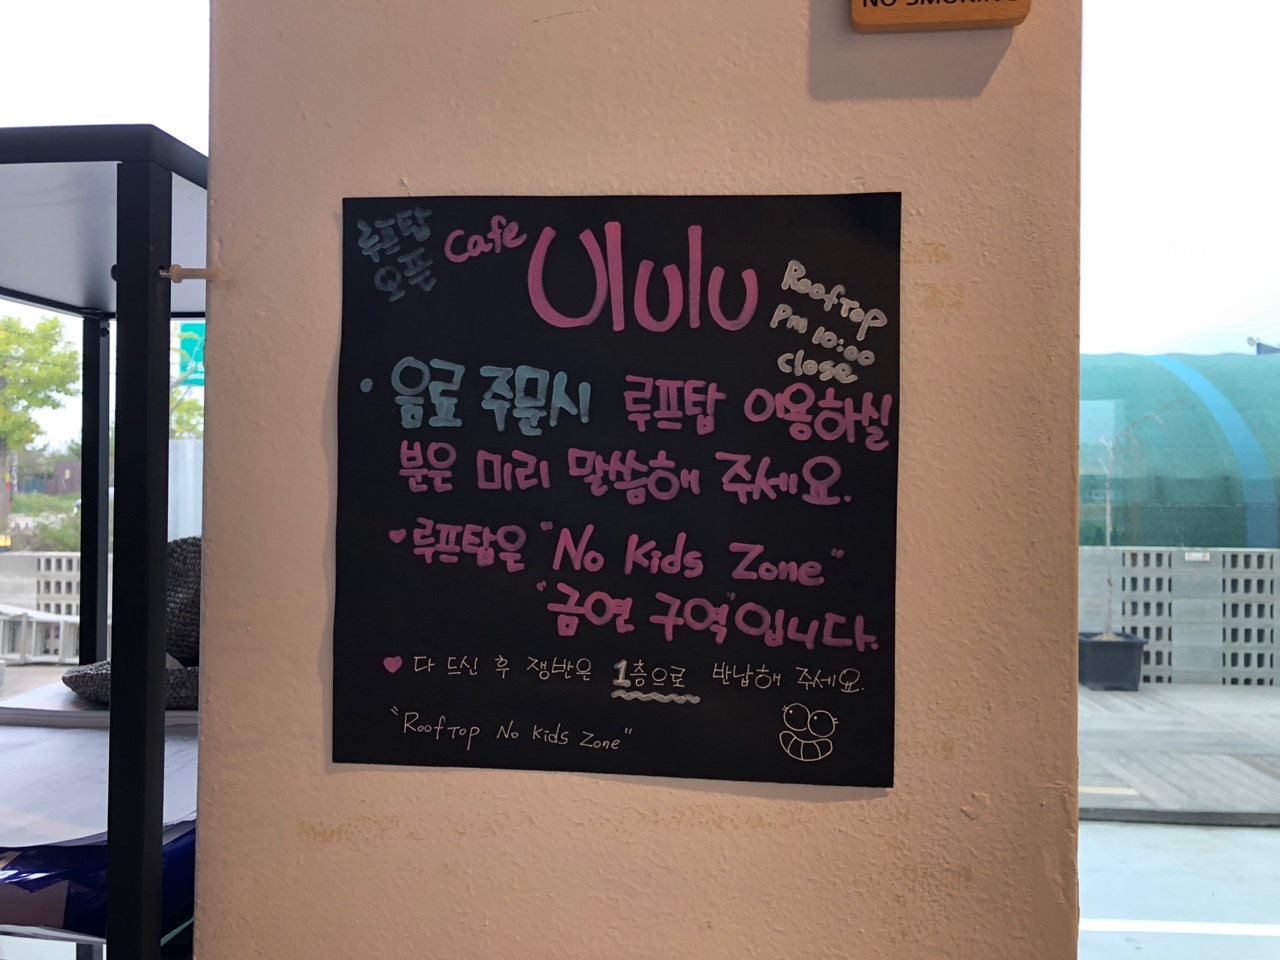 NO SMOKING
루프탑
오픈
Cafe Ululu
Rooftop
Pm 10:00
Close
• 음료 주문시 루프탑 이용하실
분은 미리 말씀해 주세요.
♥ 루프탑은 "No Kids Zone"
"금연 구역"입니다.
♥ 다 드신 후 쟁반은 1층으로 반납해 주세요.
"Rooftop No Kids Zone"